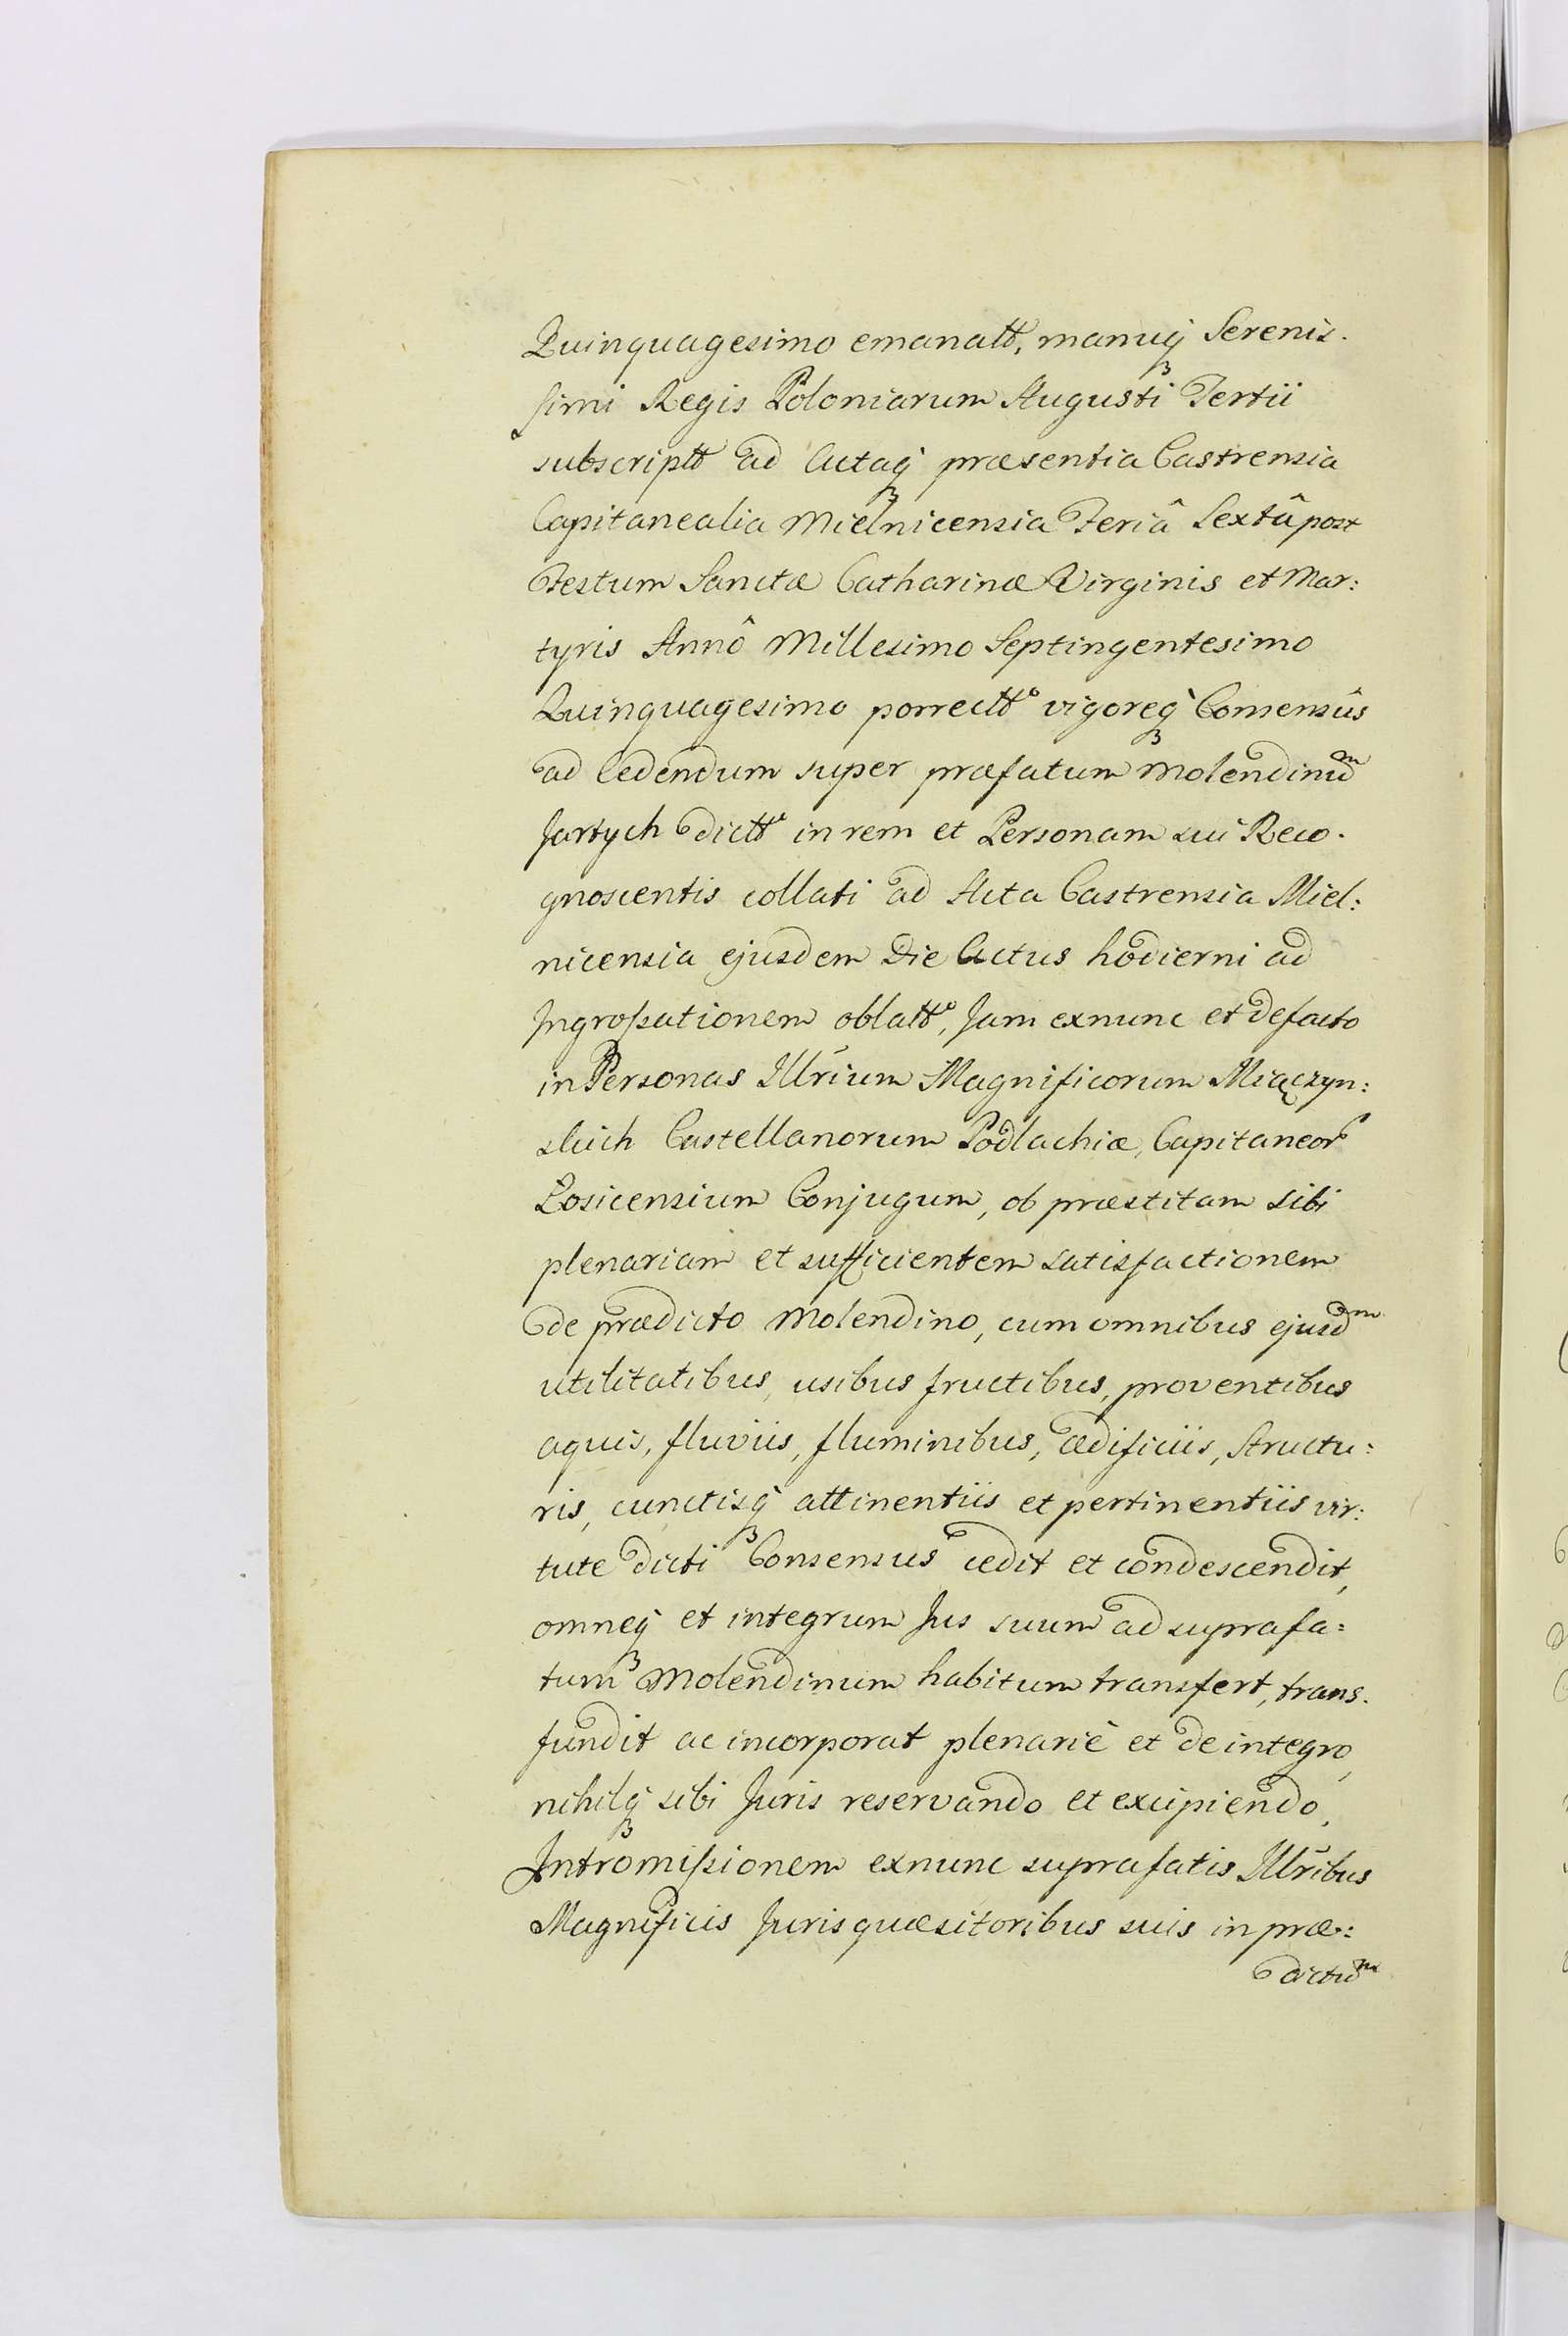 Quinquagesimo emanatt, manuq̀ꝫ Serenis.
simi Regis Poloniarum Augusti Tertii
subscriptt ad Actaq̀ꝫ præsentia Castrensia
Capitanealia Mielnicensia Feriâ Sextâ post
Festum Sanctæ Catharinæ Virginis et Mar:
tyris Annô Millesimo Septingentesimo
Quinquagesimo porrectt° vigoreq̀ꝫ Consensûs
ad Cedendum super præfatum Molendinũm
Jartych dictt° in rem et Personam sui Reco.
gnoscentis collati ad Acta Castrensia Miel:
nicensia ejusdem Die Actus hodierni ad
Ingroſsationem oblatt°, Jam exnunc et defacto
in Personas Illrium Magnificorum Miączyn:
skich Castellanorum Podlachiæ, Capitaneor
Losicensium Conjugum, ob præstitam sibi
plenariam et sufficientem satisfactionem
de prædicto Molendino, cum omnibus ejusdm
utilitatibus, usibus fructibus, proventibus
aquis, fluviis, fluminibus, ædificiis, Structu:
ris, cunctisq̀ꝫ attinentiis et pertinentiis vir:
tute dicti Consensus cedit et condescendit,
omneq̀ꝫ et integrum Jus suum ad suprafa=
tum Molendinum habitum transfert, trans.
fundit ac incorporat plenariè et de integro,
nihilq̀ꝫ sibi Juris reservando et excipiendo,
Intromiſsionem exnunc suprafatis Illribus
Magnificis Jurisquæsitoribus suis in præ:
dictũm